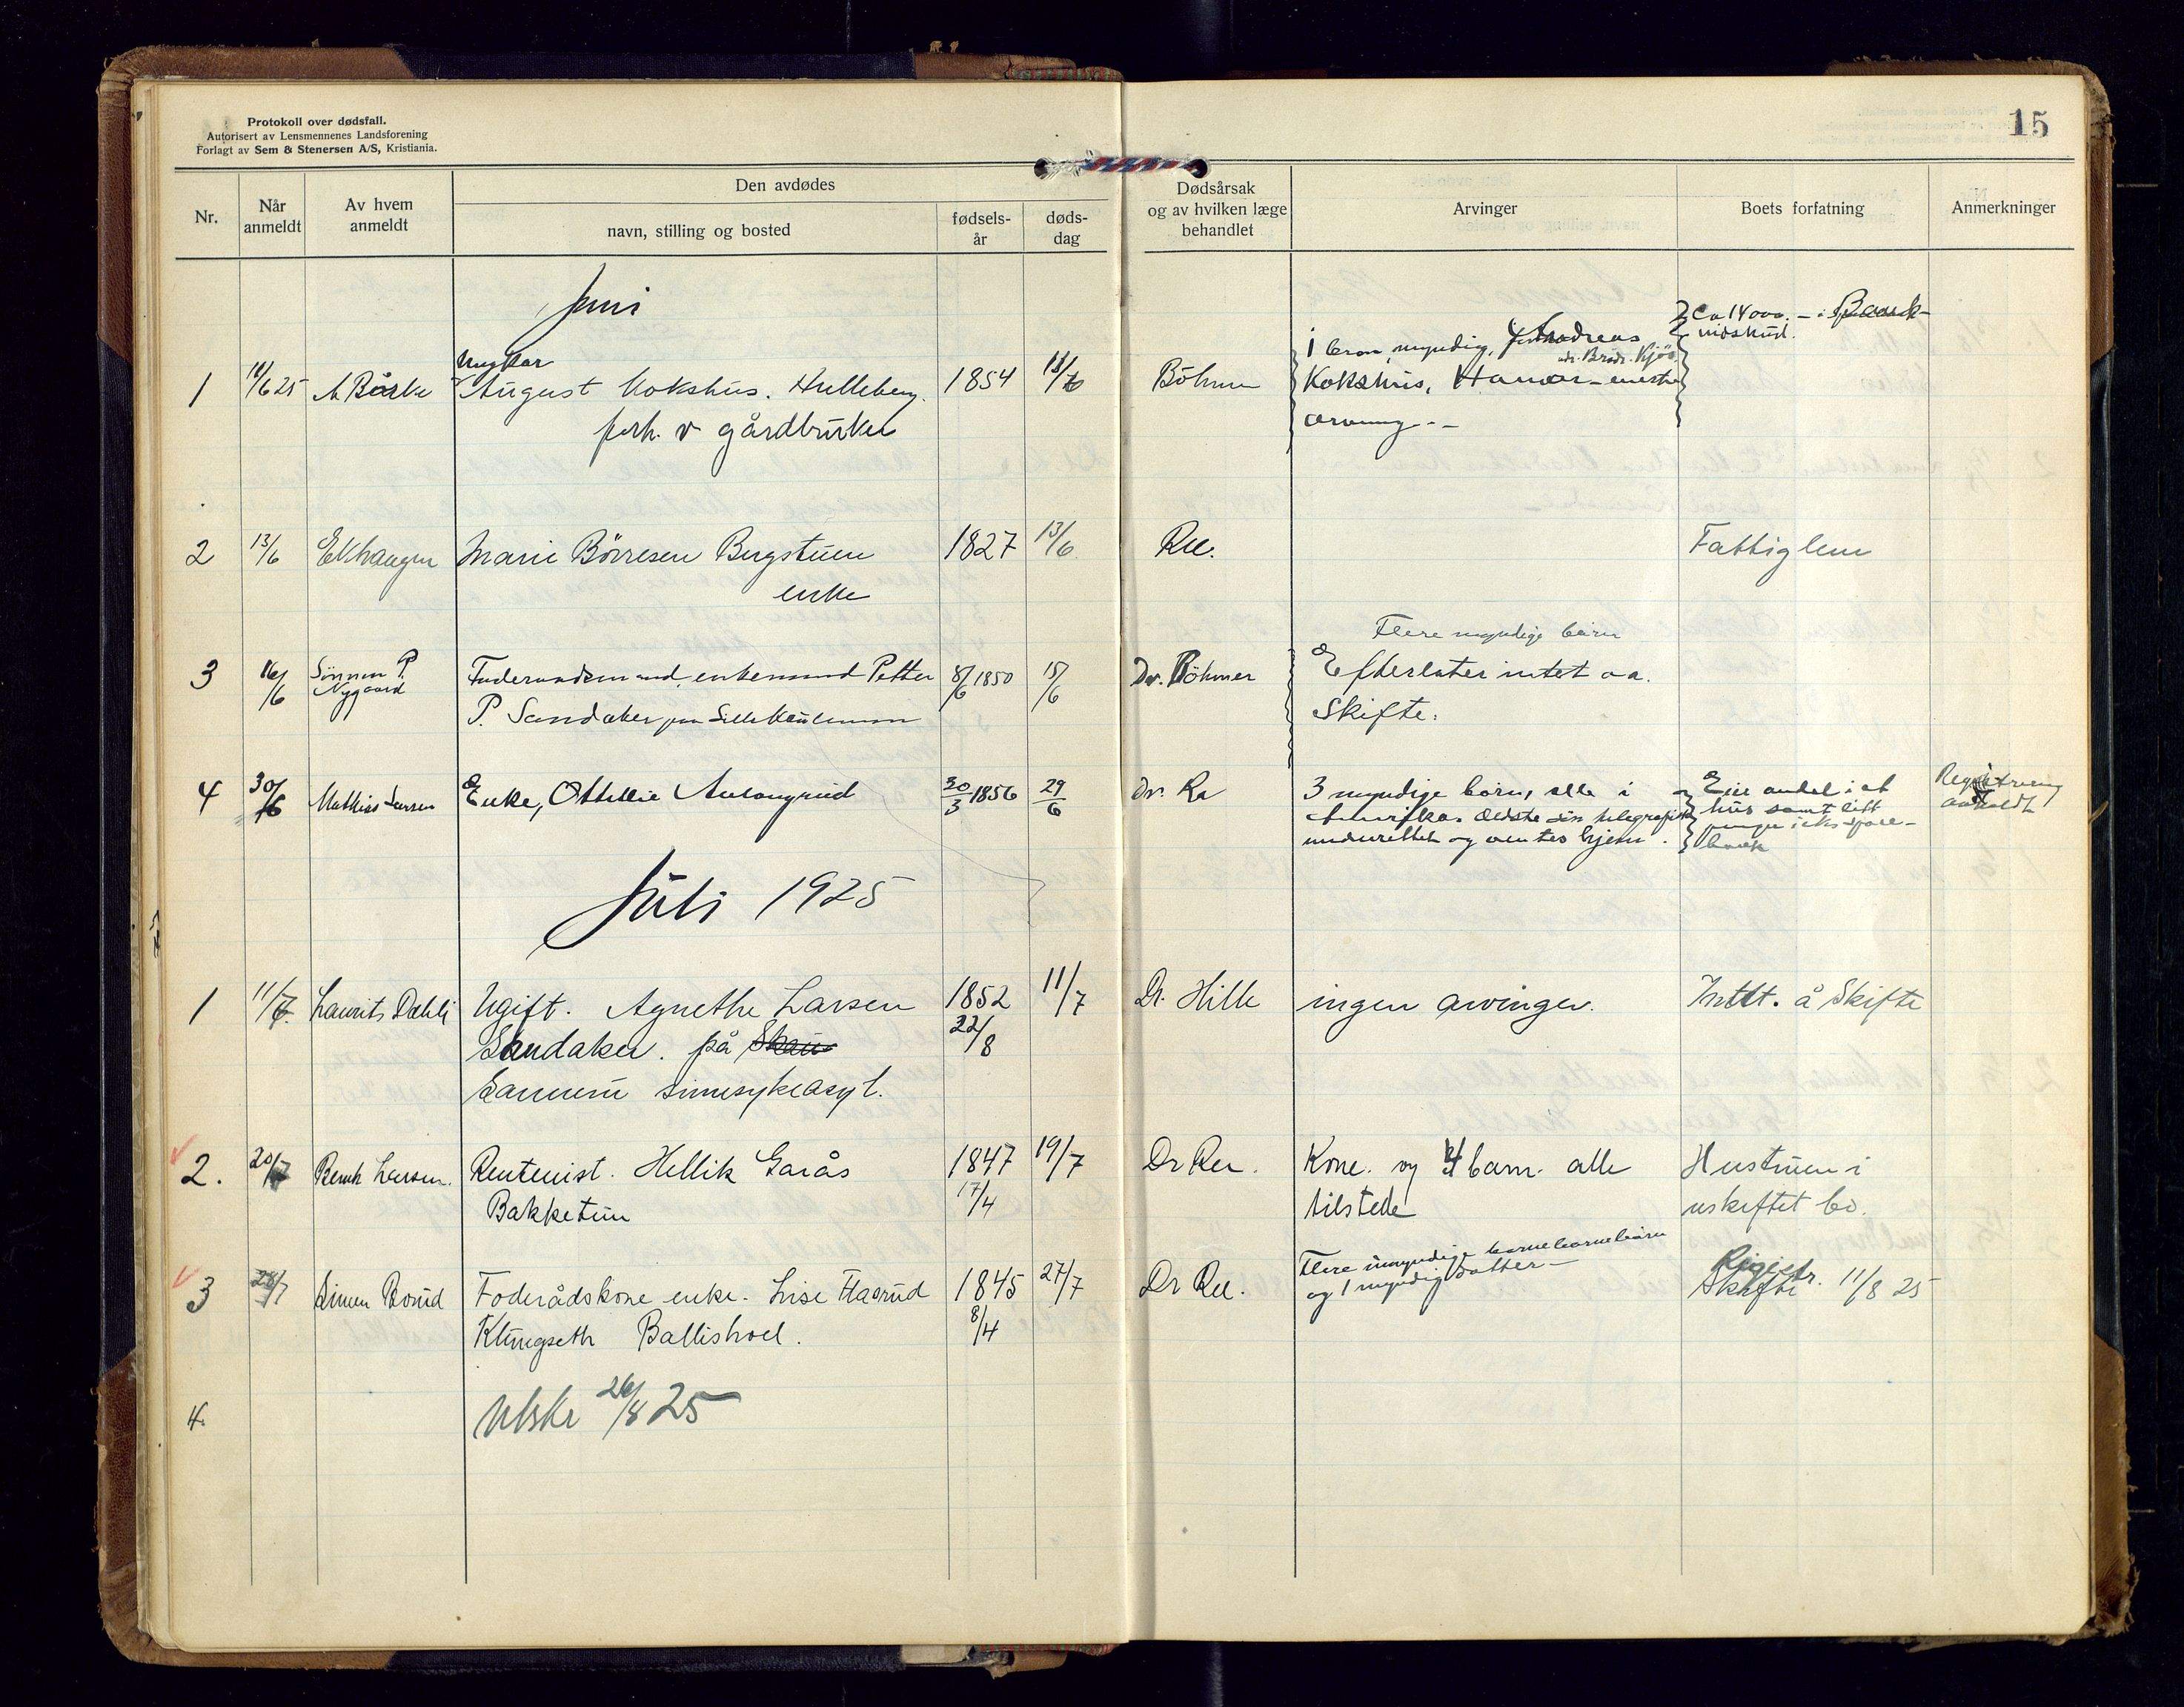 Protokoll over dødsfall.
Autorisert av Lensmennenes Landsforening
Forlagt av Sem & Stenersen A/S, Kristiania.
15
Nr.
Når anmeldt
Av hvem anmeldt
Den avdødes
navn, stilling og bosted
fødsels-år
døds-dag
Dødsårsak og av hvilken læge behandlet
Arvinger
Boets forfatning
Anmerkninger
Juni
Ungkar
1 11/6 25 August Kokshus. Hulleberg. 1854 Böhmer
forh. v gårdbruker
1 myndig, Andreas
Kokshus, Hamar - eneste
arving. -
Ca 14000. - i Bank-
2 13/6 Marie Börresen Bergstuen 1827 13/6 Ree. Fattiglem
enke
Flere myndige börn
3 16/6 Sönnen P. Nygaard Foderaadsmand, enkemand Petter 8/6 1850 15/6 Dr. Böhmer Efterlater intet aa
P. Sandaker paa Skifte.
4 30/6 Mathias Larsen Enke, Othillie 30/3 1856 29/6 Dr. Re 3 myndige börn, alle i Eier andel i et
Amerika. Ældste sön telegrafisk hus samt litt
underrettet og ventes hjem. bank
Registrering
avholdt
Juli 1925
1 11/7 Laurits Dahli Ugift. Agnethe Larsen 1852 11/7 Dr. Hille ingen arvinger. Intet. å Skifte
Sandaker. på Skau 22/8
Sannum sinnsykeasyl.
2. 20/7 Bernh Larsen. Rentenist. Hellik Garås 1847 19/7 Dr Ree. Kone. og 4 barn. alle Hustruen i
Bakketun 17/4 tilstede uskiftet bo.
3 28/7 Simen Foderådskone enke. Lise Haarud 1845 27/7 Dr Ree. Flere umyndige barnebarnebörn Registr.
og 1 myndig datter - Skifte 11/8 25
Klungseth Ballishoel. 8/4
4. Utskr 26/8 25